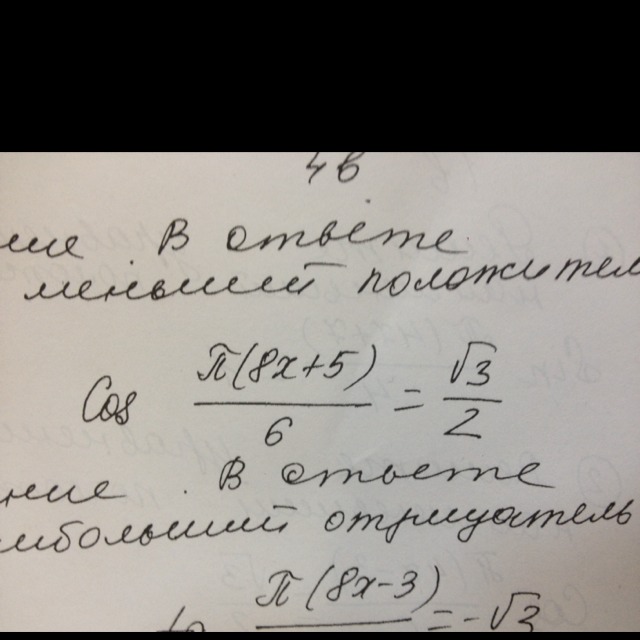 4в
ние В ответе
меньший положител
Cos π(8x+5)/6 = √3/2
ние. В ответе
ибольший отрицатель
tg π(8x-3) = -√3